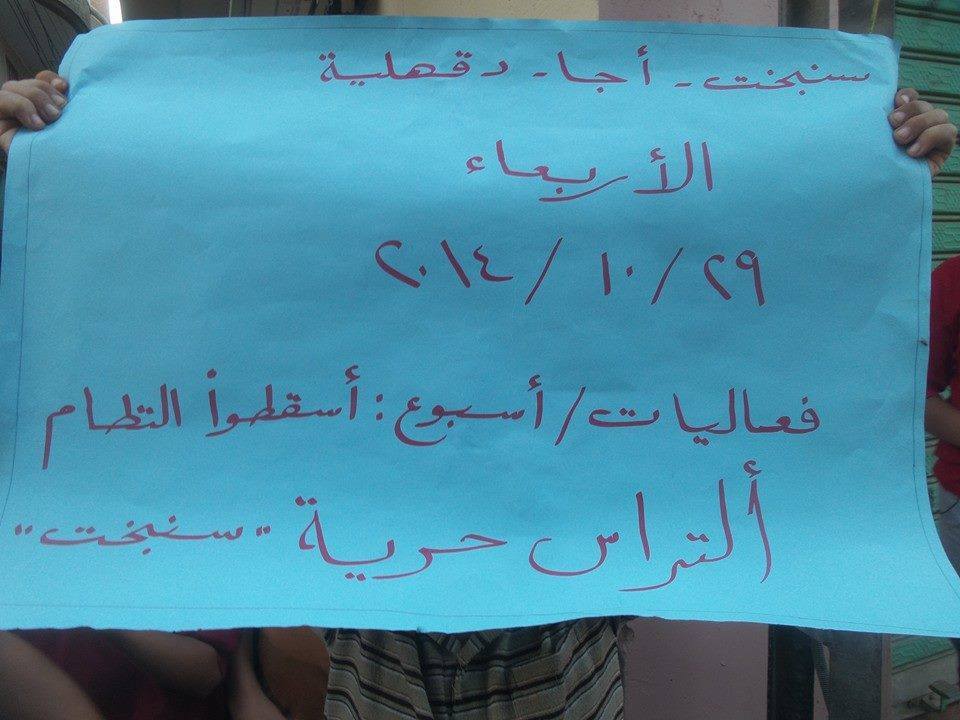 سنبخت - أجا - دقهلية
الأربعاء
٢٩ / ١٠ / ٢٠١٤
فعاليات / أسبوع : أسقطوا النظام
ألتراس حرية "سنبخت"